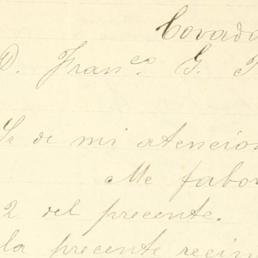 Covado
D. Franco. G.
Se de mi atencion
Me fabor
2 del precente.
la precente recim